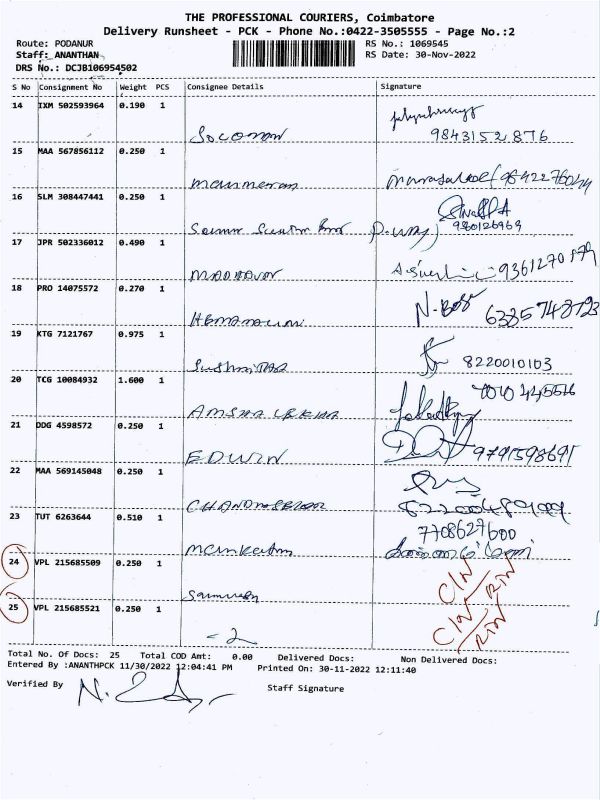 THE PROFESSIONAL COURIERS, Coimbatore
Delivery Runsheet - PCK - Phone No.:0422-3505555 - Page No.:2
Route: PODANUR RS No.: 1069545
Staff: ANANTHAN RS Date: 30-Nov-2022
DRS No.: DCJB106954502
S No Consignment No Weight PCS Consignee Details Signature
14 IXM 502593964 0.190 1
Socoman 9843152876
15 MAA 567856112 0.250 1
16 SLM 308447441 0.250 1
17 JPR 502336012 0.490 1
Madhavan
18 PRO 14075572 0.270 1
N. Bose
Hemamalini
19 KTG 7121767 0.975 1
8220010103
20 TCG 10084932 1.600 1
AMSHA LEKHA
21 DDG 4598572 0.250 1
EDWIN 9791598691
22 MAA 569145048 0.250 1
23 TUT 6263644 0.510 1
7708627600
24 VPL 215685509 0.250 1
C/N
R/N
25 VPL 215685521 0.250 1
C/N
R/N
- 2
Total No. Of Docs: 25 Total COD Amt: 0.00 Delivered Docs: Non Delivered Docs:
Entered By :ANANTHPCK 11/30/2022 12:04:41 PM Printed On: 30-11-2022 12:11:40
Verified By Staff Signature